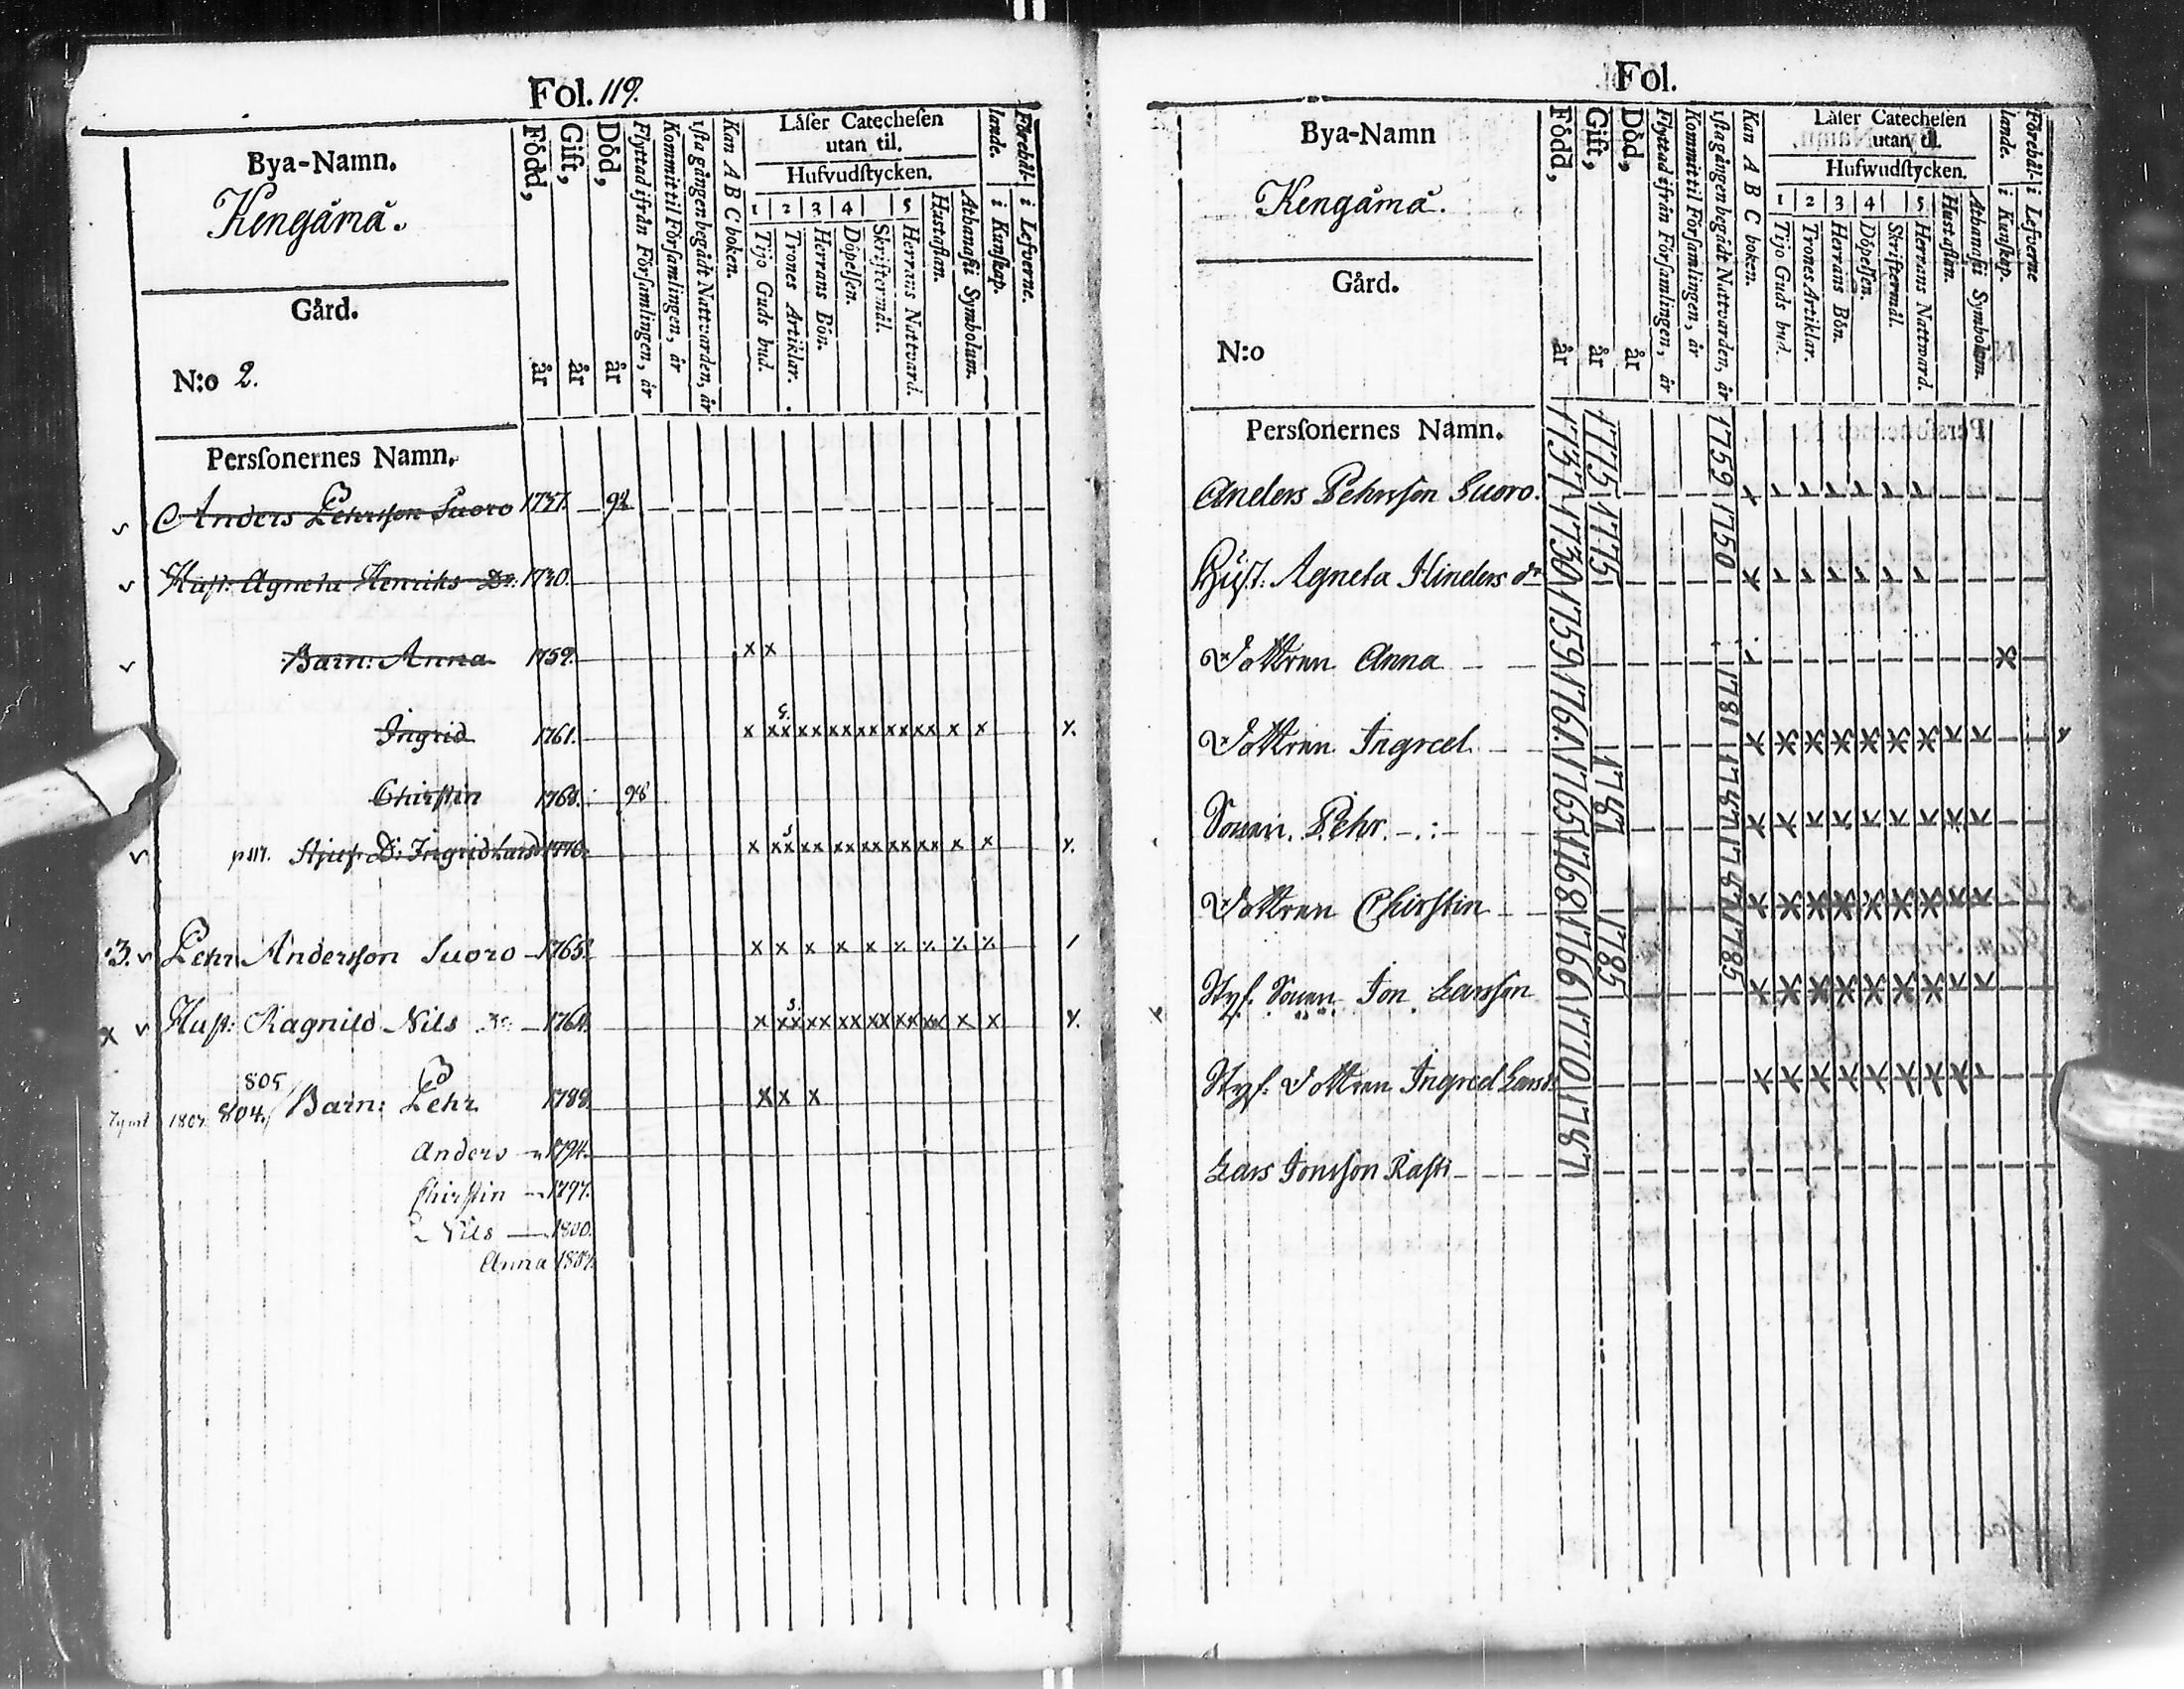 Fol. 119.
Bya-Namn.
Kengämä.
Gård.
N:o 2.
Född, år
Gift, år
Död, år
Flyttad ifrån Församlingen, år
Kommit til Församlingen, år
ista gången begådt Nattvarden, år
Kan A B C boken.
Läser Catechesen
utan til.
Hufvudstycken.
1 2 3 4 5
Tijo Guds bud.
Trones Artiklar.
Herrans Bön.
Döpelsen.
Skriftermål.
Herrans Nattvard.
Hustaflan.
Athanasii Symbolum.
Förehållande.
i Kunskap.
i Lefverne.
Perssonernes Namn.
Anders Pehrsson Suoro 1737. 92
Hust: Agneta Henriks Dr. 1730.
Barn: Anna 1759. x x
Ingrid 1761. x xx xx xx xx xx xx x x
Chirstin 1768. 98
p 117. Stjuf: D: Ingrid Lars 1770. x xx xx xx xx xx xx x x
3. Pehr Andersson Suoro 1765. x x x x x
x Hust: Ragnild Nils 1764. x xx xx xx xx xx xx x x
805
804. Barn: Pehr 1788. x x x
Anders 1794.
Chirstin 1797.
Nils 1800.
Anna
Fol.
Bya-Namn
Kengämä.
Gård.
N:o
Född, år
Gift, år
Död, år
Flyttad ifrån Församlingen, år
Kommit til Församlingen, år
ista gången begådt Nattvarden, år
Kan A B C boken.
Läser Catechesen
utan til.
Hufwudstycken.
1 2 3 4 5
Tijo Guds bud.
Trones Artiklar.
Herrans Bön.
Döpelsen.
Skriftermål.
Herrans Natward.
Hustaflan.
Athanasii Symbolum.
Förehållande.
i Kunskap.
i Lefverne
Perssonernes Namn.
Anders Pehrsson Suoro. 1737 1775 1759
Hust: Agneta Hinders dr 1730 1775 1750
Dottren Anna 1759
Dottren Ingred 1761 1781
Sonen Pehr 1765 1787 1787
Dottren Chirstin 1768 1787
Styf. Sonen Jon Larsson 1766 1785 1785
Styf. Dottren Ingred Lars dr 1770
Lars Jonsson Rasti 1787